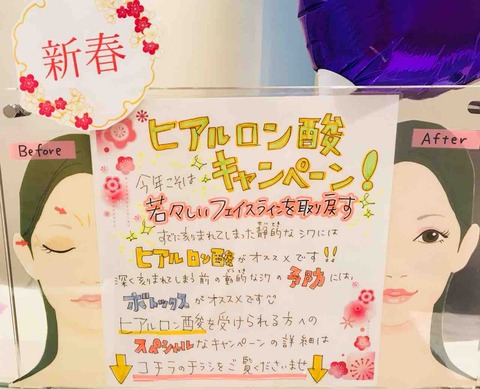 新春
Before
After
ヒアルロン酸
今年こそは
キャンペーン！
若々しいフェイスラインを取り戻す
すでに刻まれてしまった静的なシワには
ヒアルロン酸がオススメです!!
深く刻まれてしまう前の動的なシワの予防には、
ボトックスがオススメです
ヒアルロン酸を受けられる方への
スペシャルなキャンペーンの詳細は
コチラのチラシをご覧くださいませ